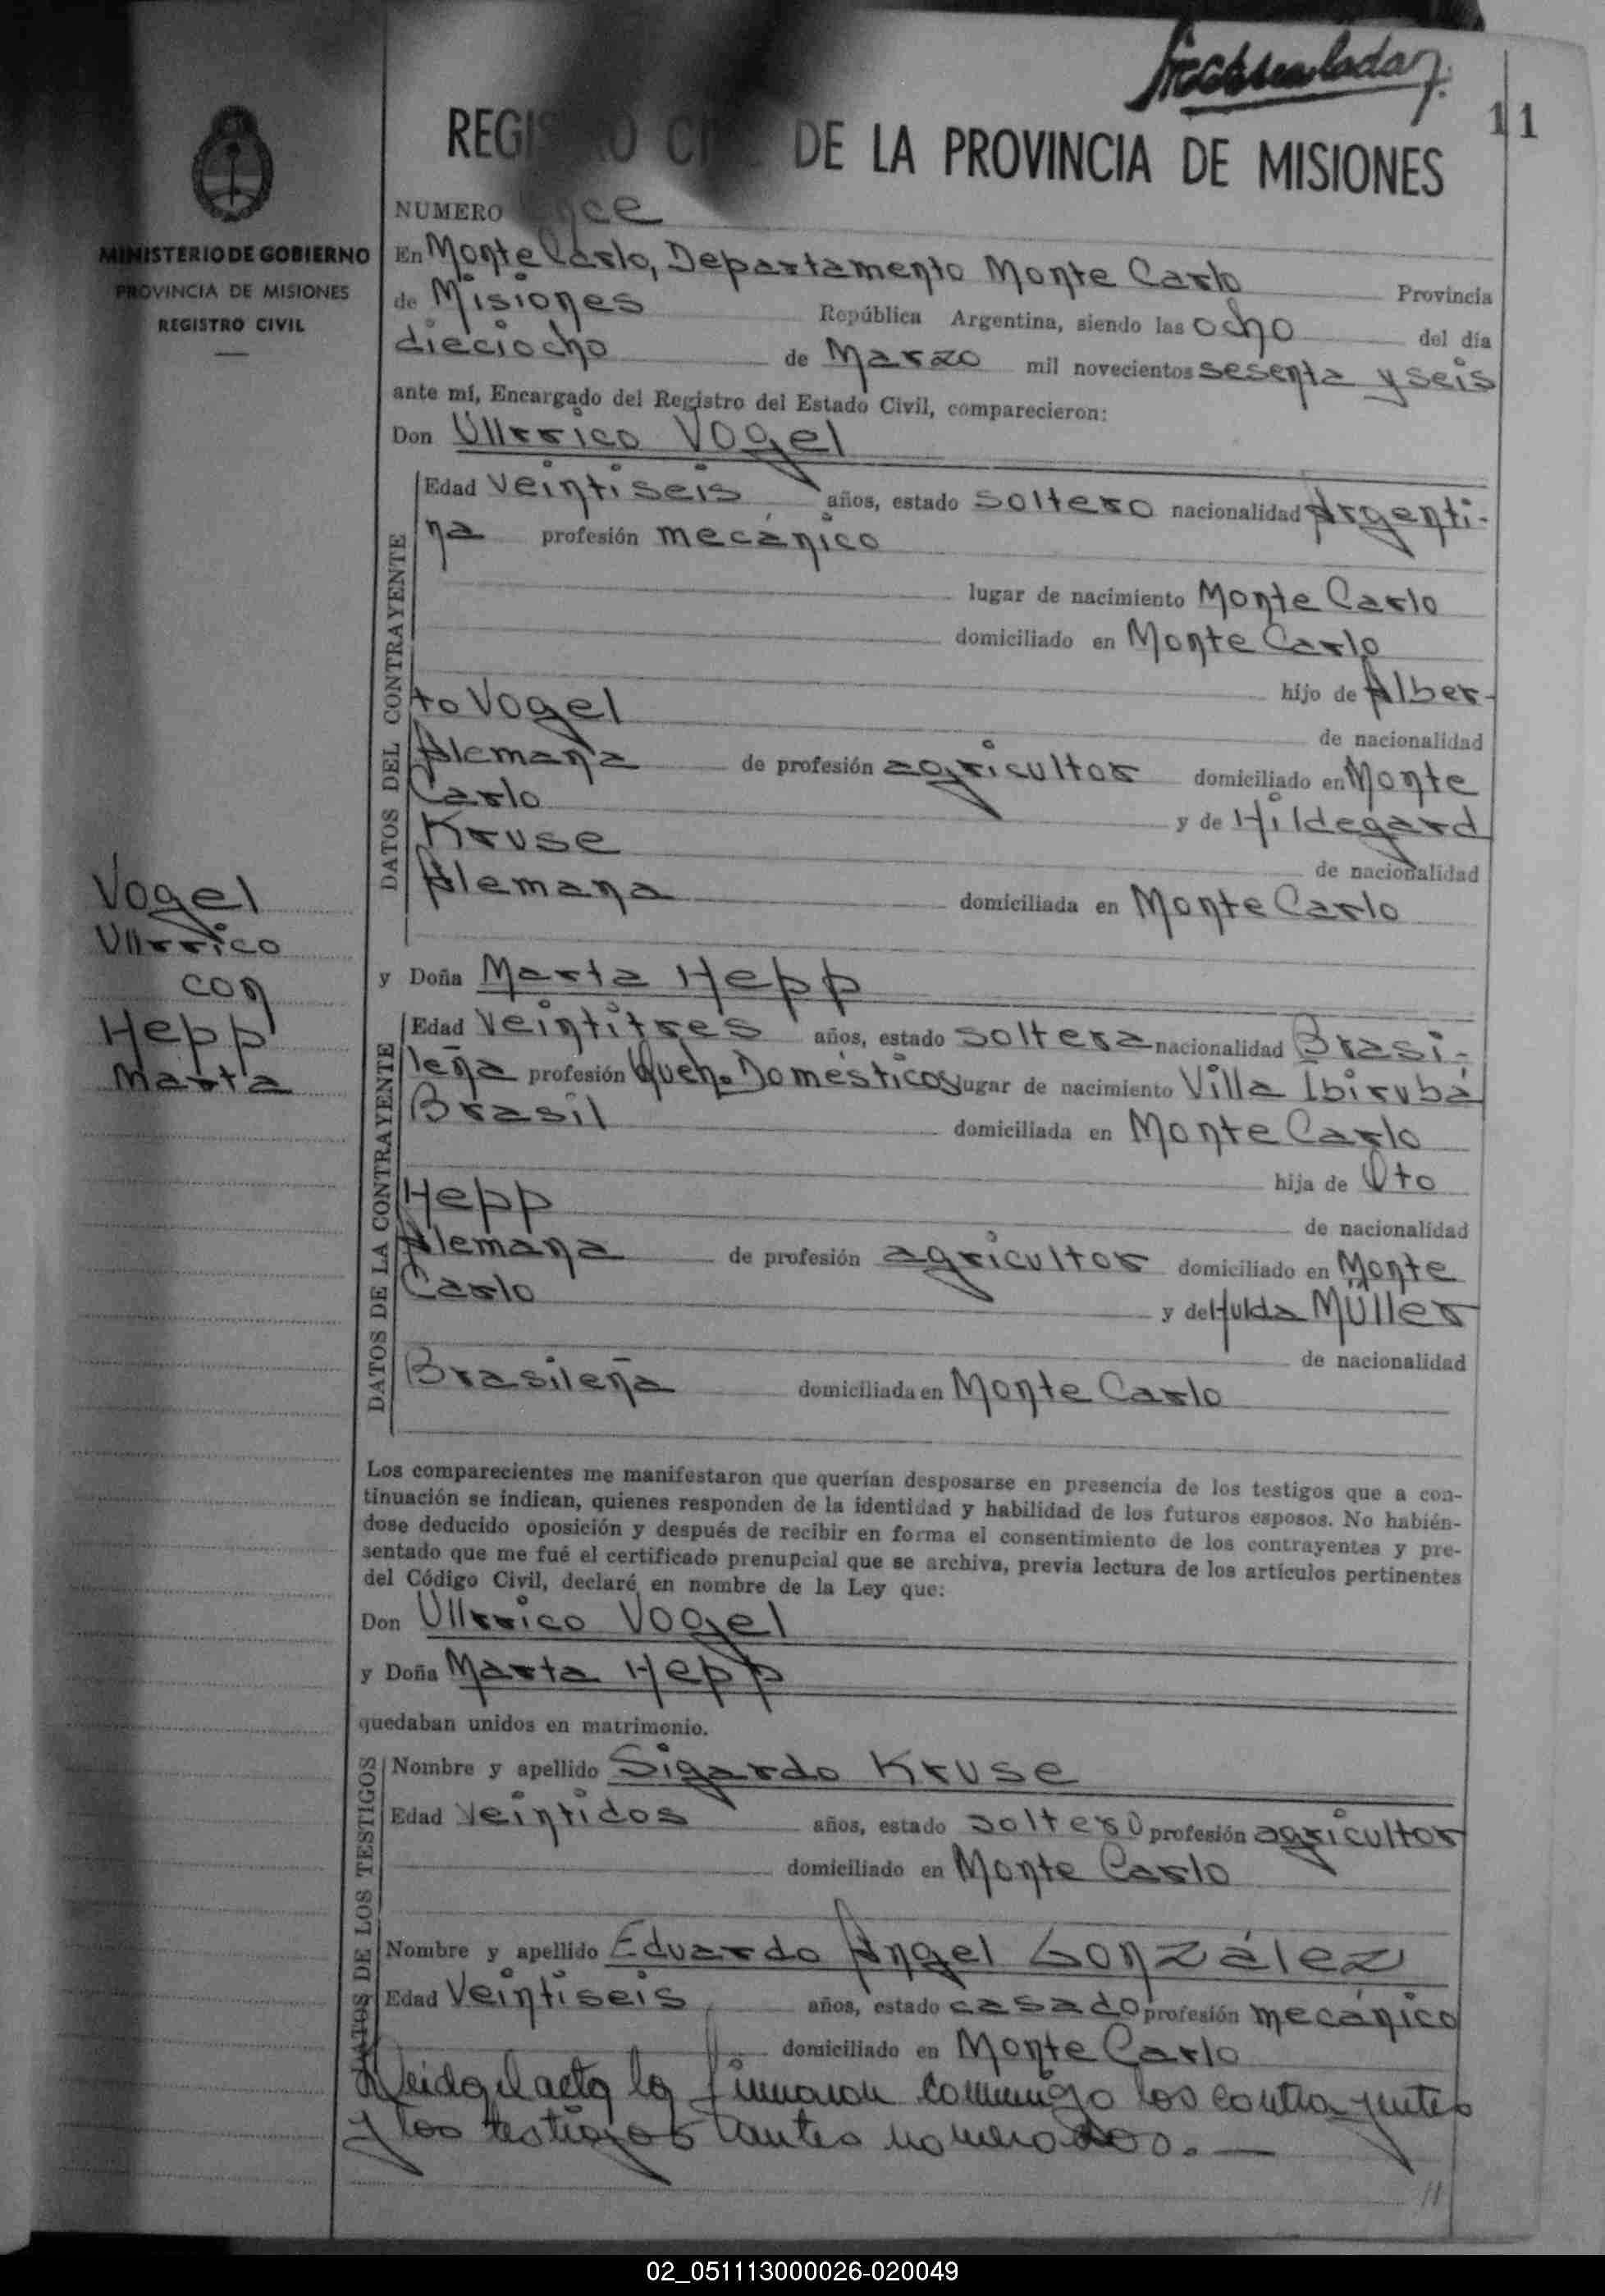 11
REGISTRO CIVIL DE LA PROVINCIA DE MISIONES
NUMERO Once
MINISTERIO DE GOBIERNO
PROVINCIA DE MISIONES
REGISTRO CIVIL
En Monte Carlo, Departamento Monte Carlo Provincia
de Misiones República Argentina, siendo las ocho del día
dieciocho de Marzo mil novecientos sesenta y seis
ante mí, Encargado del Registro del Estado Civil, comparecieron:
Don Ullrrico Vogel
DATOS DEL CONTRAYENTE
Edad veintiseis años, estado soltero nacionalidad Argenti-
na profesión mecánico
lugar de nacimiento Monte Carlo
domiciliado en Monte Carlo
hijo de Alber-
to Vogel de nacionalidad
Alemana de profesión agricultor domiciliado en Monte
Carlo y de Hildegard
Kruse de nacionalidad
Alemana domiciliada en Monte Carlo
Vogel
Ullrrico
con
Hepp
Marta
y Doña Marta Hepp
DATOS DE LA CONTRAYENTE
Edad veintitres años, estado soltera nacionalidad Brasi-
leña profesión Queh. Domésticos lugar de nacimiento Villa Ibirubá
Brasil domiciliada en Monte Carlo
hija de Oto
Hepp de nacionalidad
Alemana de profesión agricultor domiciliado en Monte
Carlo y de Hulda Müller
de nacionalidad
Brasileña domiciliada en Monte Carlo
Los comparecientes me manifestaron que querían desposarse en presencia de los testigos que a con-
tinuación se indican, quienes responden de la identidad y habilidad de los futuros esposos. No habién-
dose deducido oposición y después de recibir en forma el consentimiento de los contrayentes y pre-
sentado que me fué el certificado prenupcial que se archiva, previa lectura de los artículos pertinentes
del Código Civil, declaré en nombre de la Ley que:
Don Ullrrico Vogel
y Doña Marta Hepp
quedaban unidos en matrimonio.
DATOS DE LOS TESTIGOS
Nombre y apellido Sigardo Kruse
Edad veintidos años, estado soltero profesión agricultor
domiciliado en Monte Carlo
Nombre y apellido Eduardo Angel González
Edad Veintiseis años, estado casado profesión mecánico
domiciliado en Monte Carlo
Leida el acta la firmaron conmigo los contrayentes
y los testigos antes nomerados.
11
02_051113000026-020049